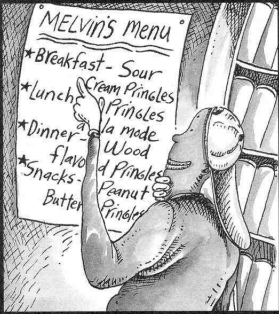 MELVIN'S MENU
★Breakfast - Sour
Cream Pringles
★Lunch
Pringles
a la mode
★Dinner-
Wood
flavo d Pringles
★Snacks- Peanut
Butter Pringles